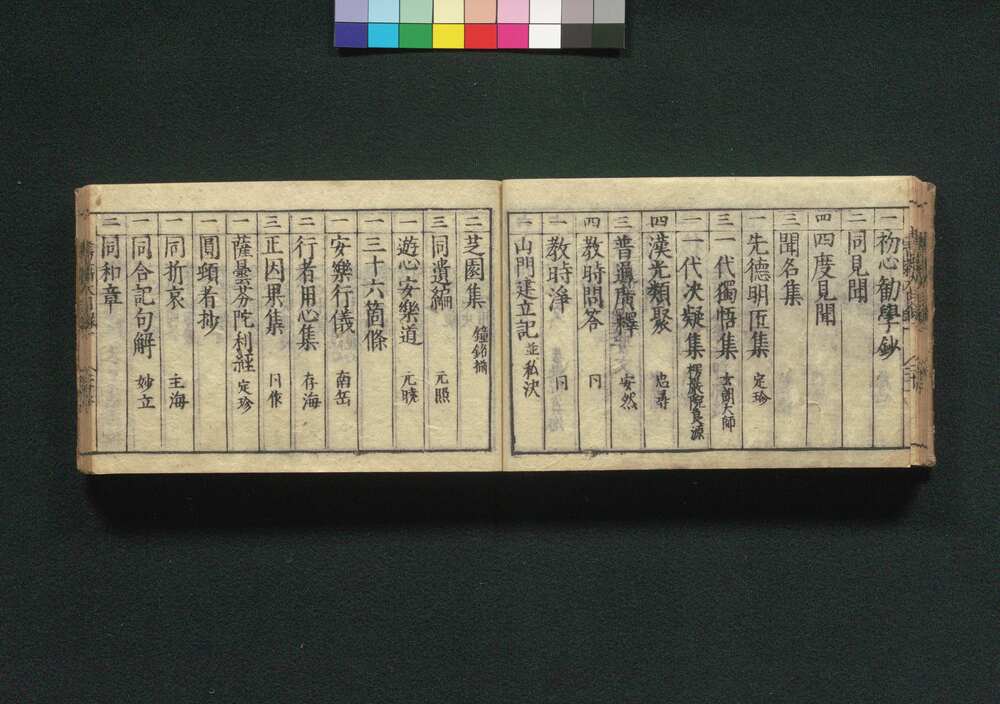 一 初心勸學鈔
二 同見聞
四 四度見聞
三 聞名集
一 先德明匠集 定珍
三 一代獨悟集 玄朗大師
一 一代决疑集 楞嚴院良源
四 漢光類聚 忠尋
三 普通廣釋 安然
四 教時問答 仝
一 教時諍 仝
一 山門建立記 並私决
二 芝園集 鐘銘摘
三 同遺編 元照
一 遊心安樂道 元曉
一 三十六箇條
一 安樂行儀 南岳
二 行者用心集 存海
三 正因果集 仝作
一 薩曇芬陀利經 定珍
一 圓頓者抄
一 同折衷 主海
一 同合記句解 妙立
二 同和章